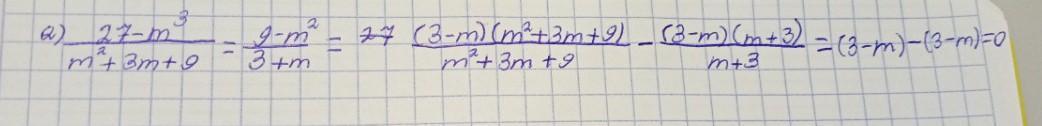 a) (27-m³)/(m²+3m+9) = (9-m²)/(3+m) = 27 ((3-m)(m²+3m+9))/(m²+3m+9) - ((3-m)(m+3))/(m+3) = (3-m)-(3-m)=0